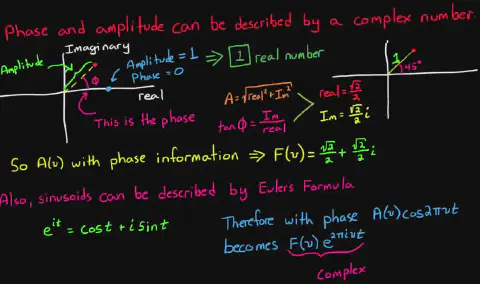 Phase and amplitude can be described by a complex number.
Imaginary
Amplitude
Amplitude = 1
Phase = 0
⇒ 1 real number
ϕ
real
This is the phase
A = √(real² + Im²)
tanϕ = Im/real
1
45°
real = √2/2
Im = √2/2 i
So A(υ) with phase information ⇒ F(υ) = √2/2 + √2/2 i
Also, sinusoids can be described by Eulers Formula
e^(it) = cost + i sint
Therefore with phase A(υ)cos2πυt
becomes F(υ) e^(2πiυt)
Complex